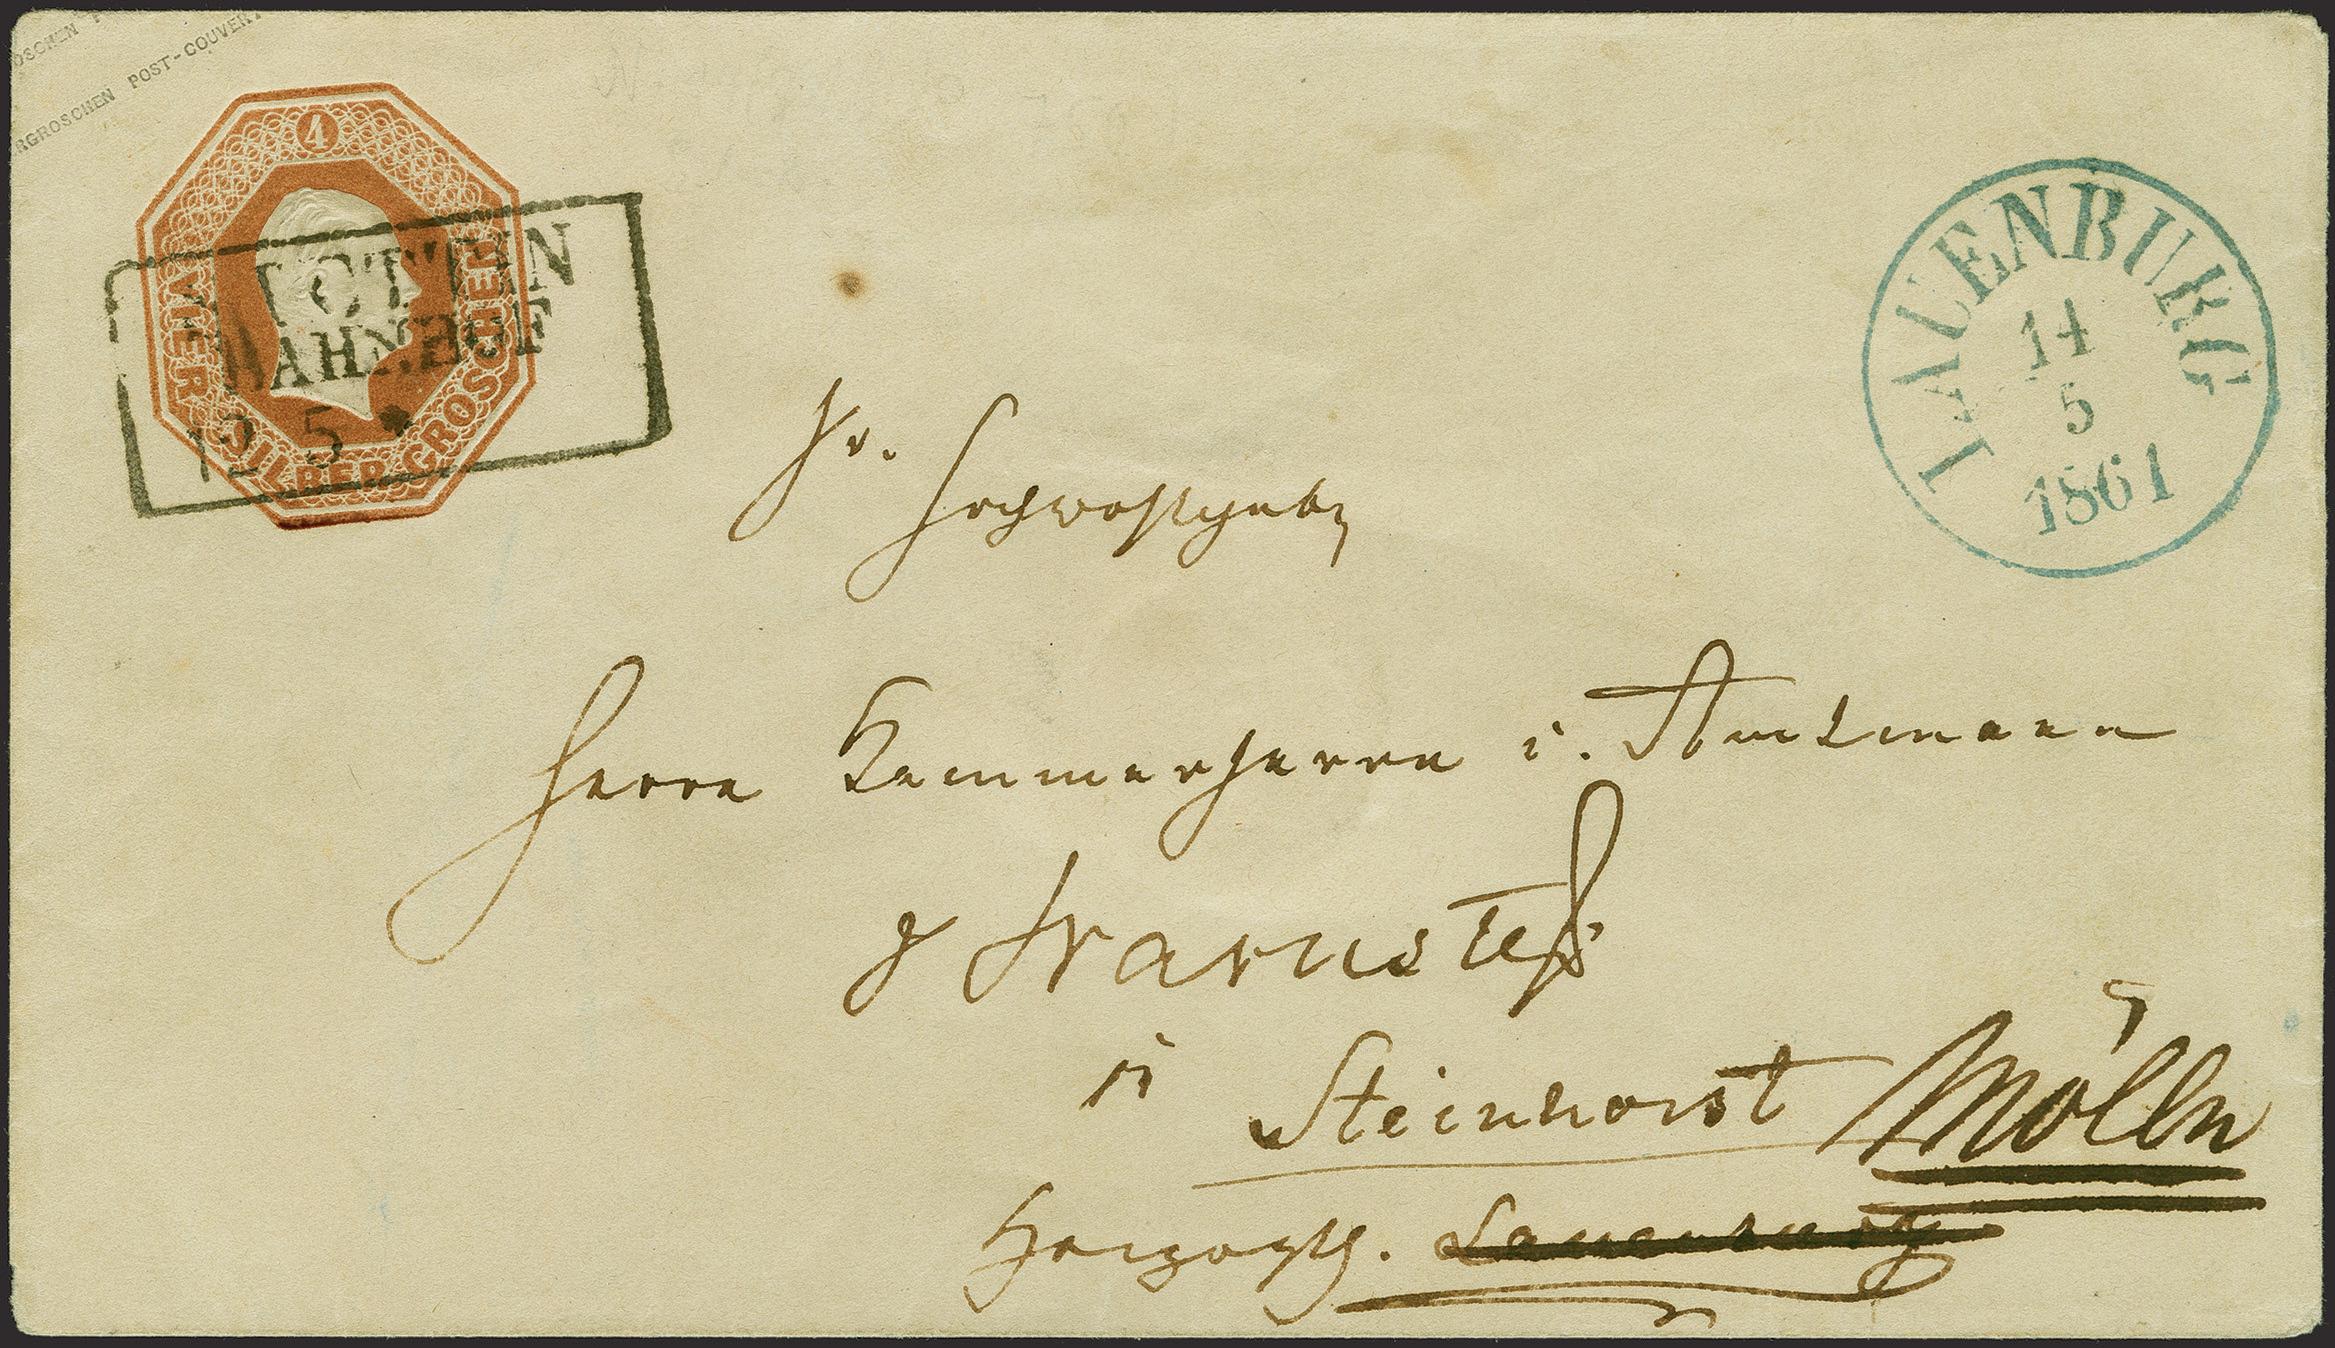 RGROSCHEN POST-COUVERT
4
VIER SILBER GROSCHEN
BAHNHOF
12 5
LAUENBURG
14
5
1861
Sr.
Hochwohlgeb
Herrn Kammerherrn u. Amtmann
Warnstedt
in Steinhorst Mölln
Herzogth. Lauenburg